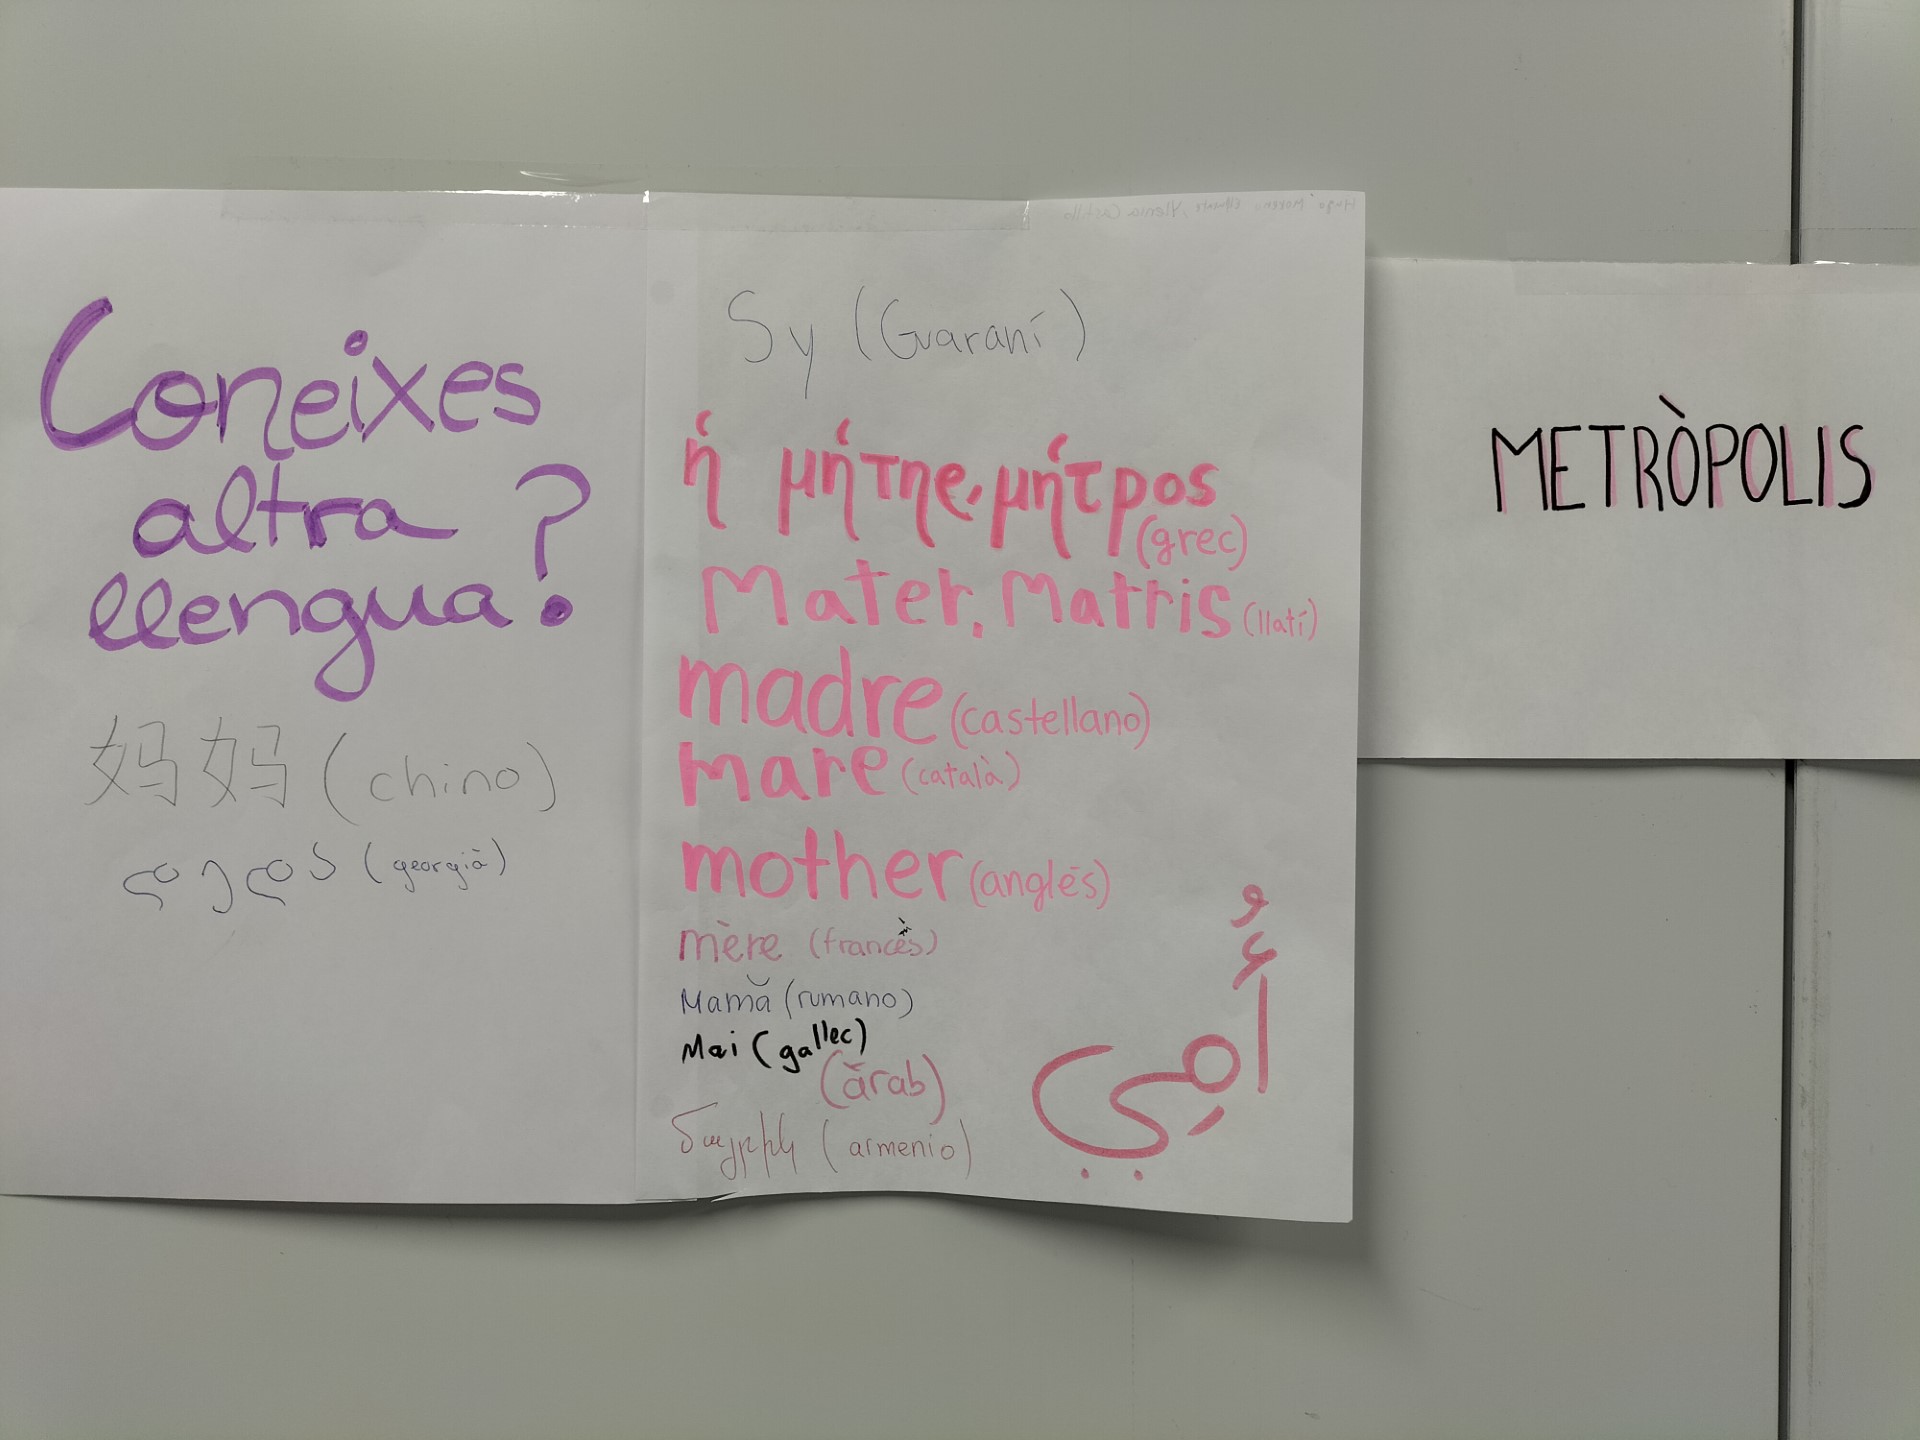 Coneixes
altra
llengua?
妈妈 (chino)
დედა (georgià)
Sy (Guaraní)
ἡ μήτηρ, μήτρος
(grec)
Mater, Matris (llatí)
madre (castellano)
mare (català)
mother (anglés)
mère (francès)
Mamă (rumano)
Mai (gallec)
(àrab)
أُمِي
մայրիկ (armenio)
METRÒPOLIS